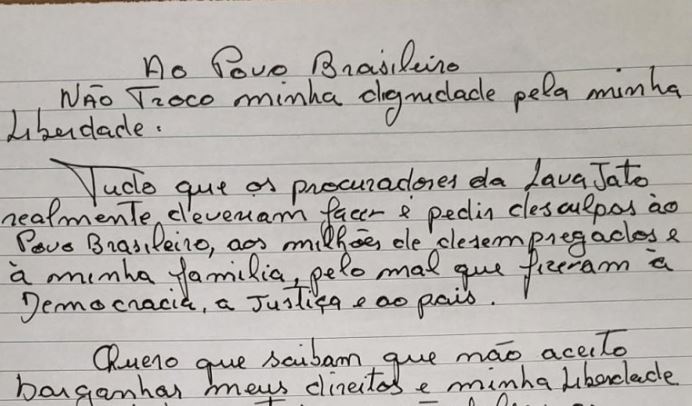 Ao Povo Brasileiro
NÃO Troco minha dignidade pela minha
Liberdade.
Tudo que os procuradores da Lava Jato
realmente deveriam fazer é pedir desculpas ao
Povo Brasileiro, aos milhões de desempregados e
à minha familia, pelo mal que fizeram à
Democracia, a Justiça e ao país.
Quero que saibam que não aceito
barganhar meus direitos e minha Liberdade